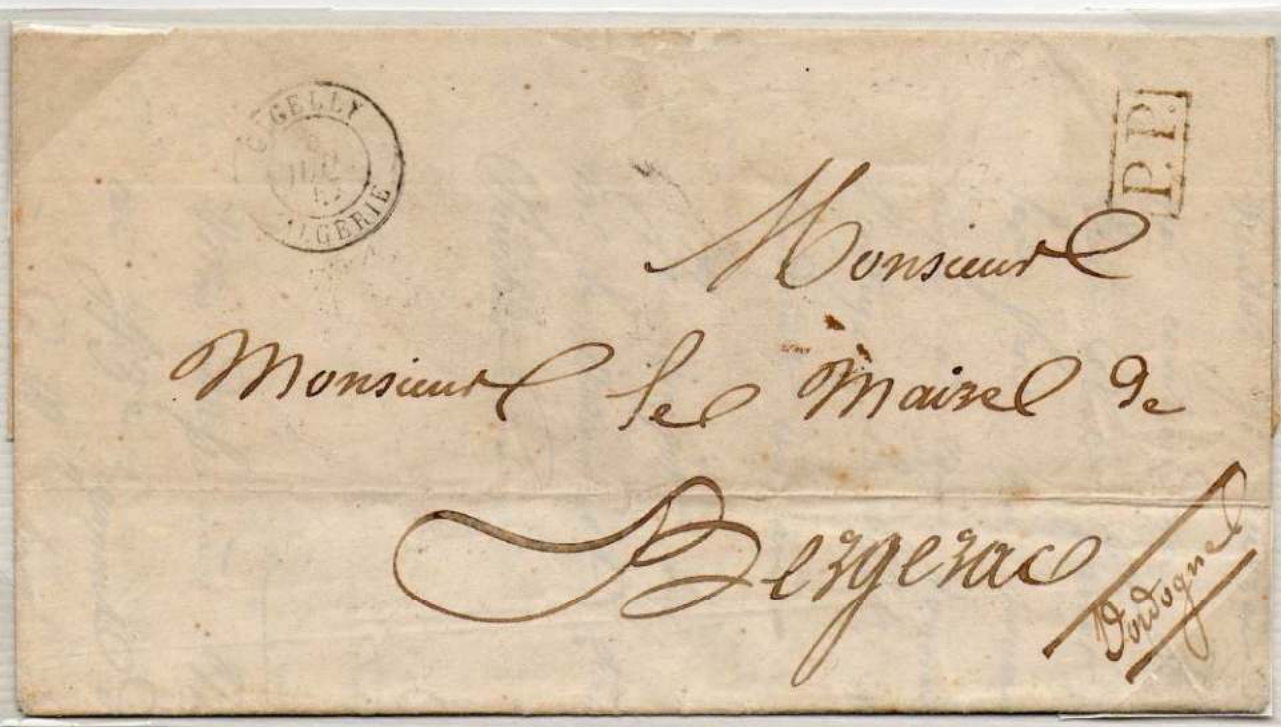 GIGELLY
ALGÉRIE
P.P.
Monsieur
Monsieur le Maire de
Bergerac
Dordogne